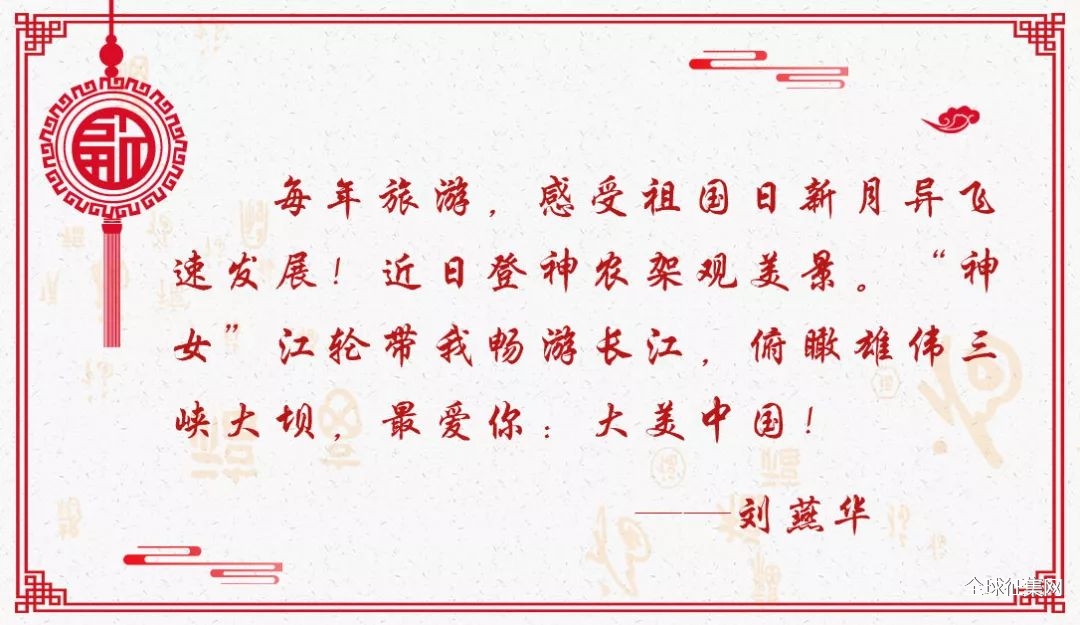 每年旅游，感受祖国日新月异飞
速发展！近日登神农架观美景。“神
女”江轮带我畅游长江，俯瞰雄伟三
峡大坝，最爱你：大美中国！
——刘燕华
全球征集网